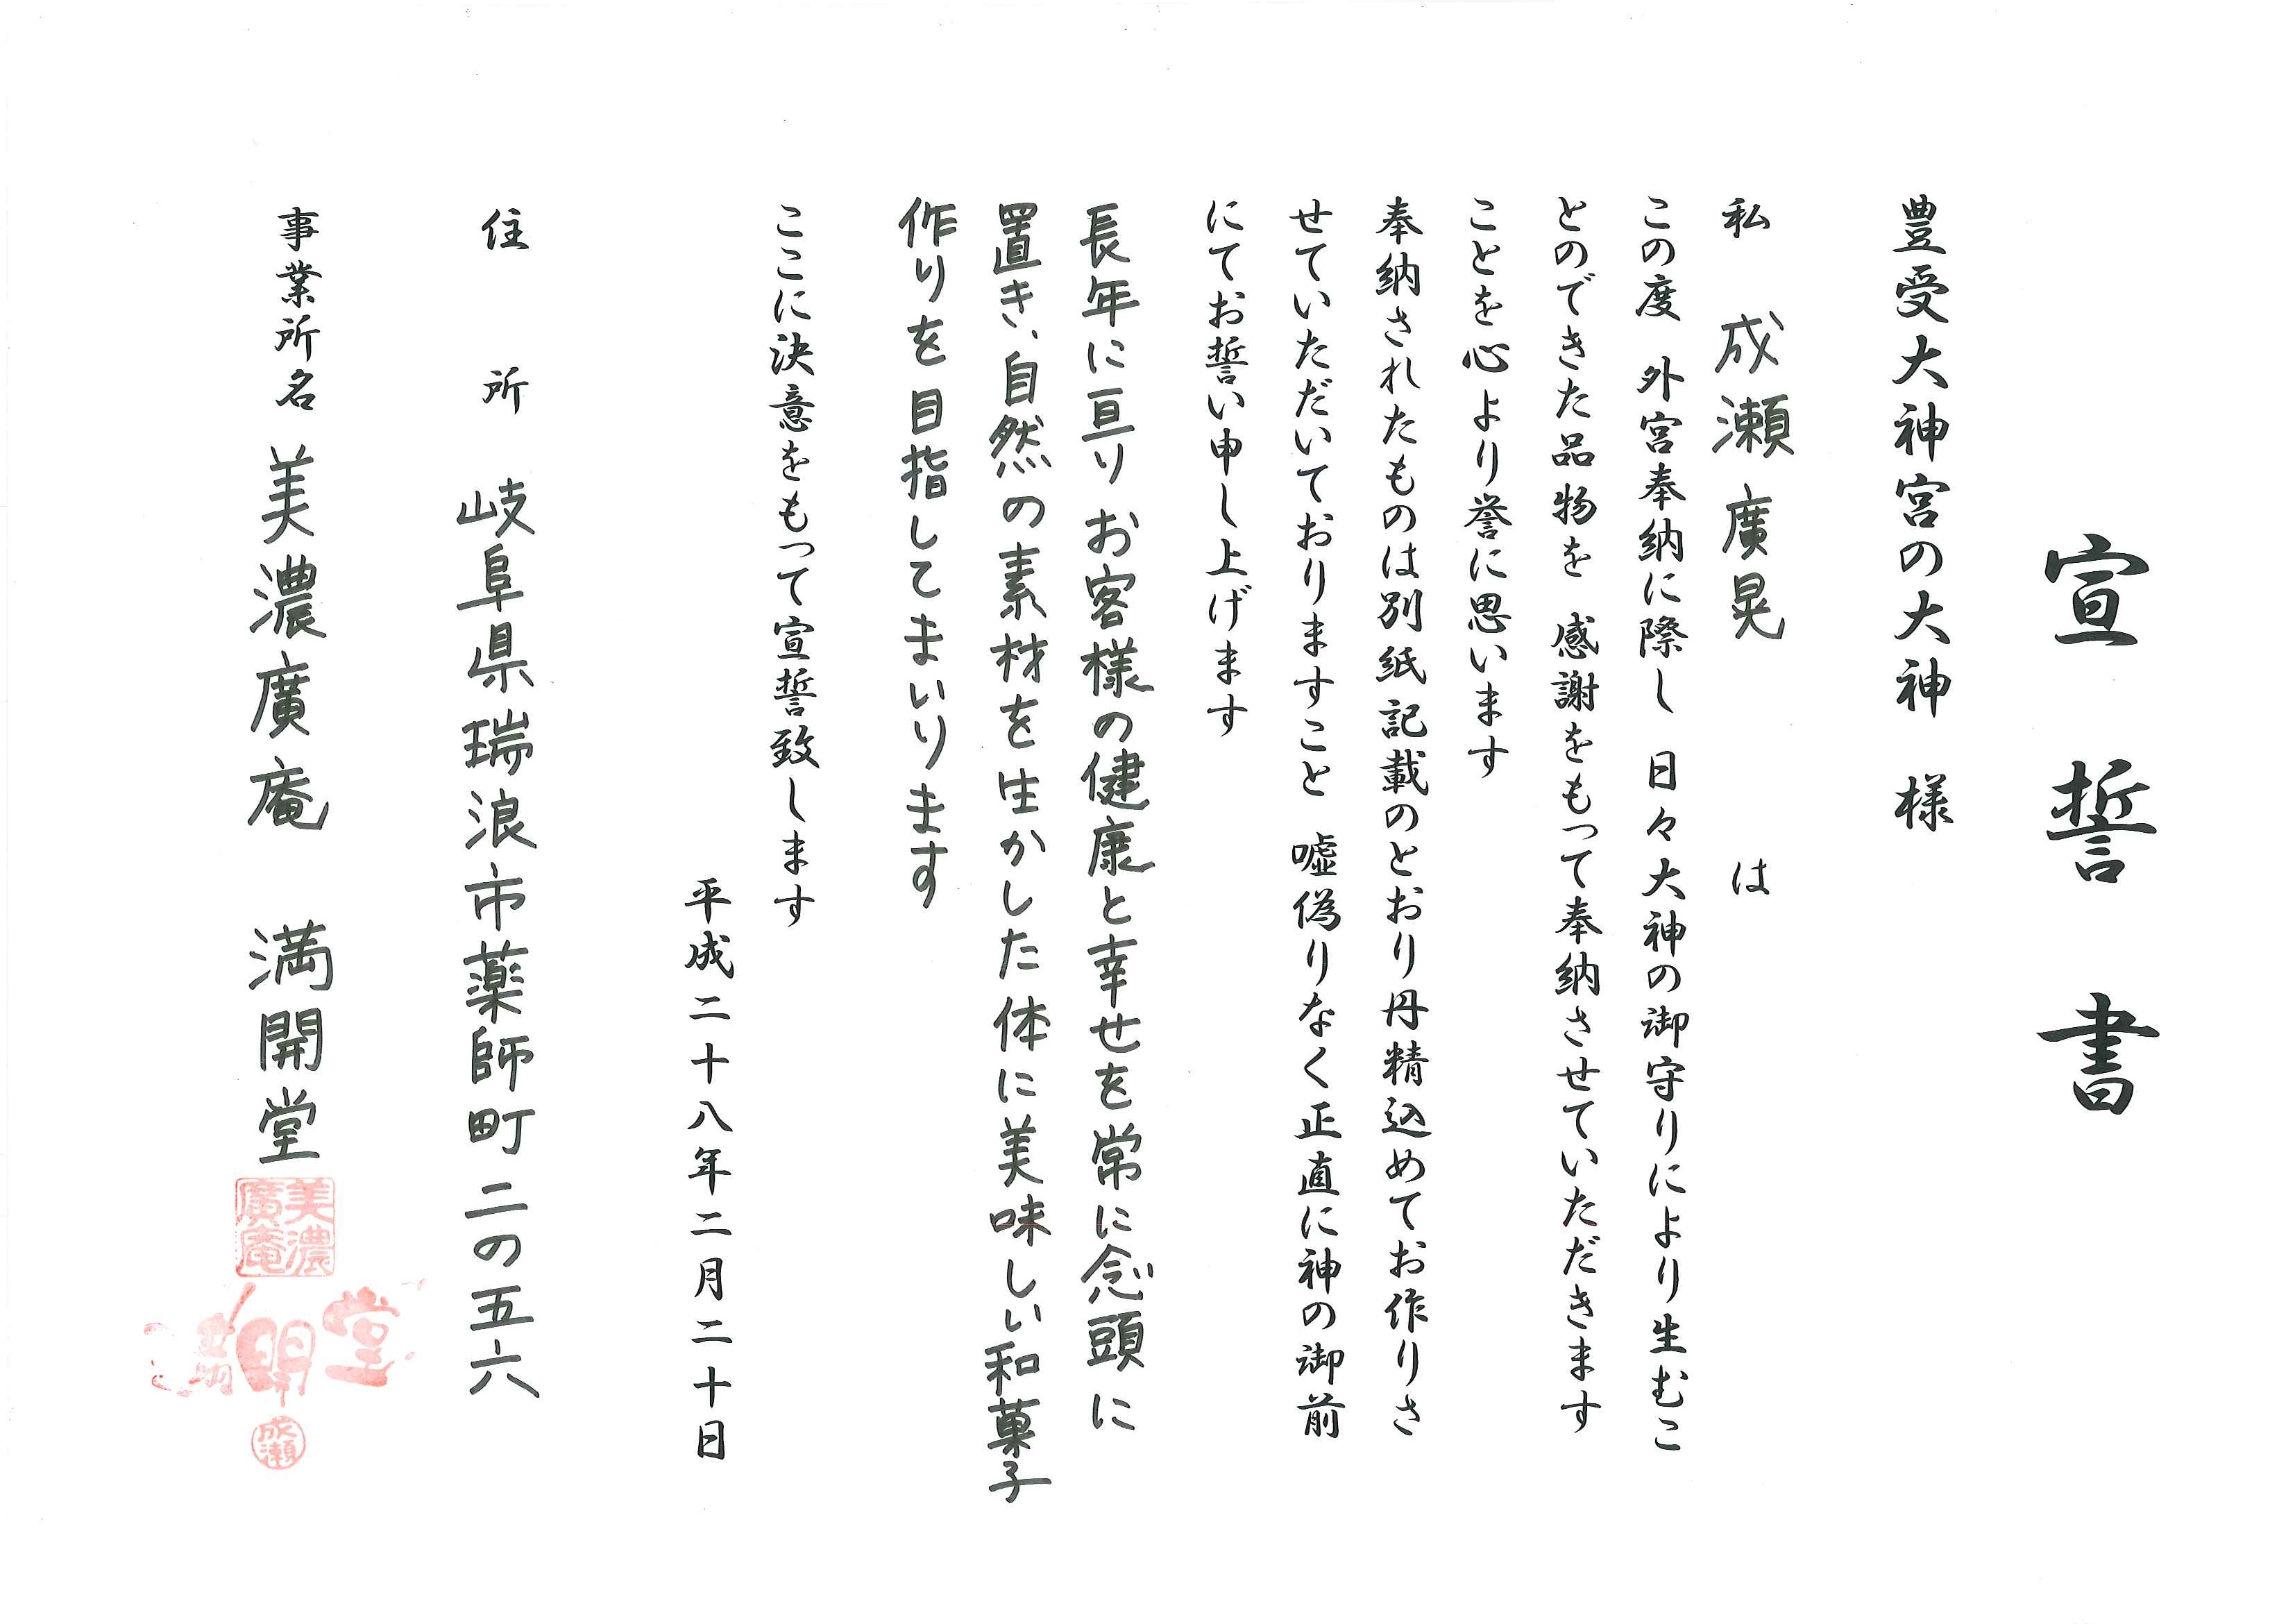 宣誓書
豊受大神宮の大神 様
私 成瀬廣晃 は
この度 外宮奉納に際し 日々大神の御守りにより生むこ
とのできた品物を 感謝をもって奉納させていただきます
ことを心より誉に思います
奉納されたものは別紙記載のとおり丹精込めてお作りさ
せていただいておりますこと 嘘偽りなく正直に神の御前
にてお誓い申し上げます
長年に亘りお客様の健康と幸せを常に念頭に
置き、自然の素材を生かした体に美味しい和菓子
作りを目指してまいります
ここに決意をもって宣誓致します
平成二十八年二月二十日
住所 岐阜県瑞浪市薬師町二の五六
事業所名 美濃廣庵 満開堂
美濃
廣庵
開堂
成瀬